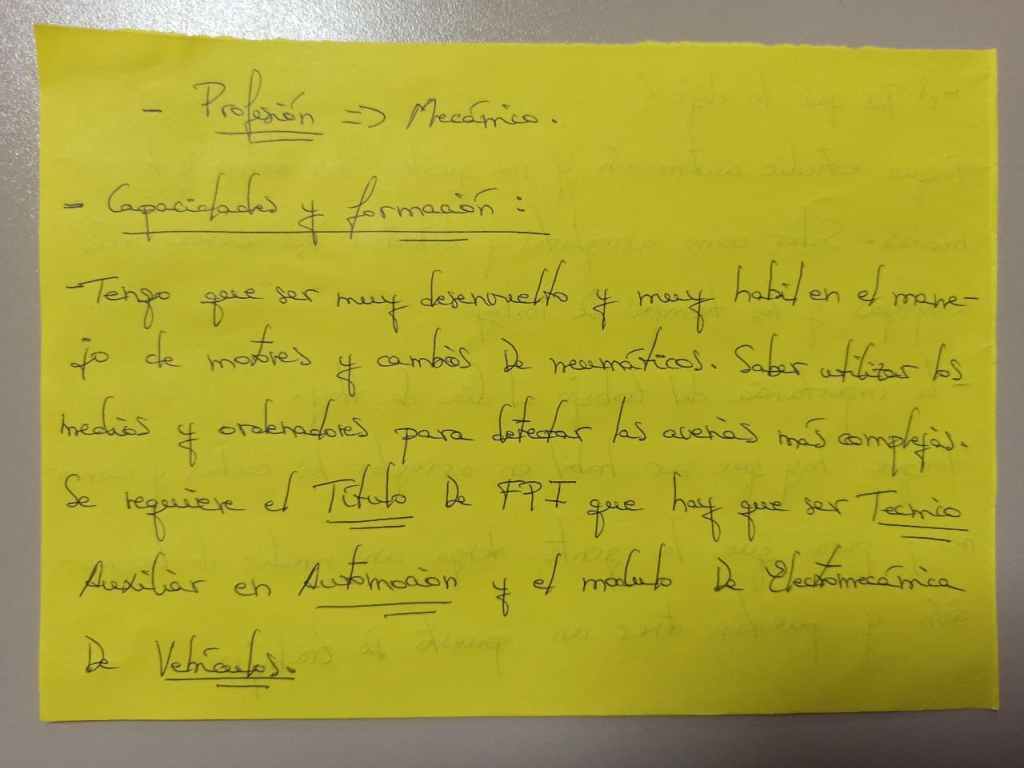 - Profesión => Mecánico.
- Capacidades y formación:
- Tengo que ser muy desenvuelto y muy habil en el mane-
jo de motores y cambios De neumáticos. Saber utilizar los
medios y ordenadores para detectar las averias más complejas.
Se requiere el Título De FPI que hay que ser Tecnico
Auxiliar en Automoción y el modulo De Electromecánica
De Vehículos.